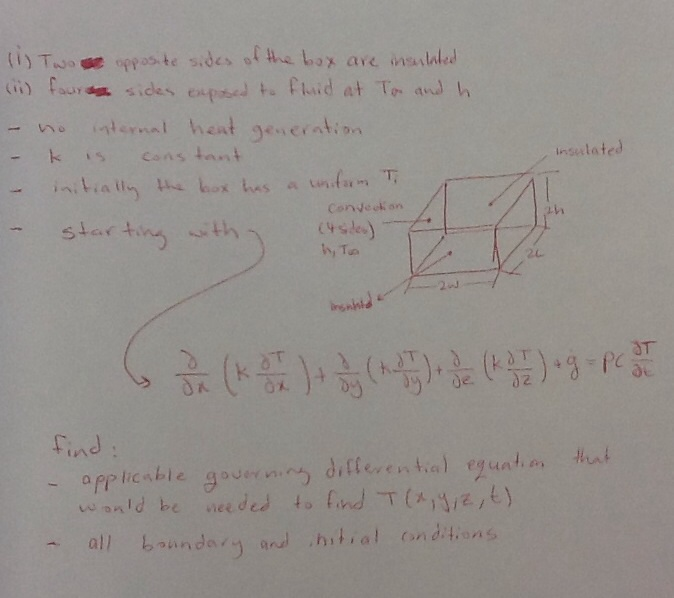 (i) Two opposite sides of the box are insulated
(ii) four sides exposed to fluid at T∞ and h
- no internal heat generation
- k is constant
- initially the box has a uniform Ti
- starting with
insulated
convection
(4 sides)
h, T∞
insulated
2h
2L
2w
∂/∂x (k ∂T/∂x) + ∂/∂y (k ∂T/∂y) + ∂/∂z (k ∂T/∂z) + g = ρc ∂T/∂t
find:
- applicable governing differential equation that
would be needed to find T(x,y,z,t)
- all boundary and initial conditions